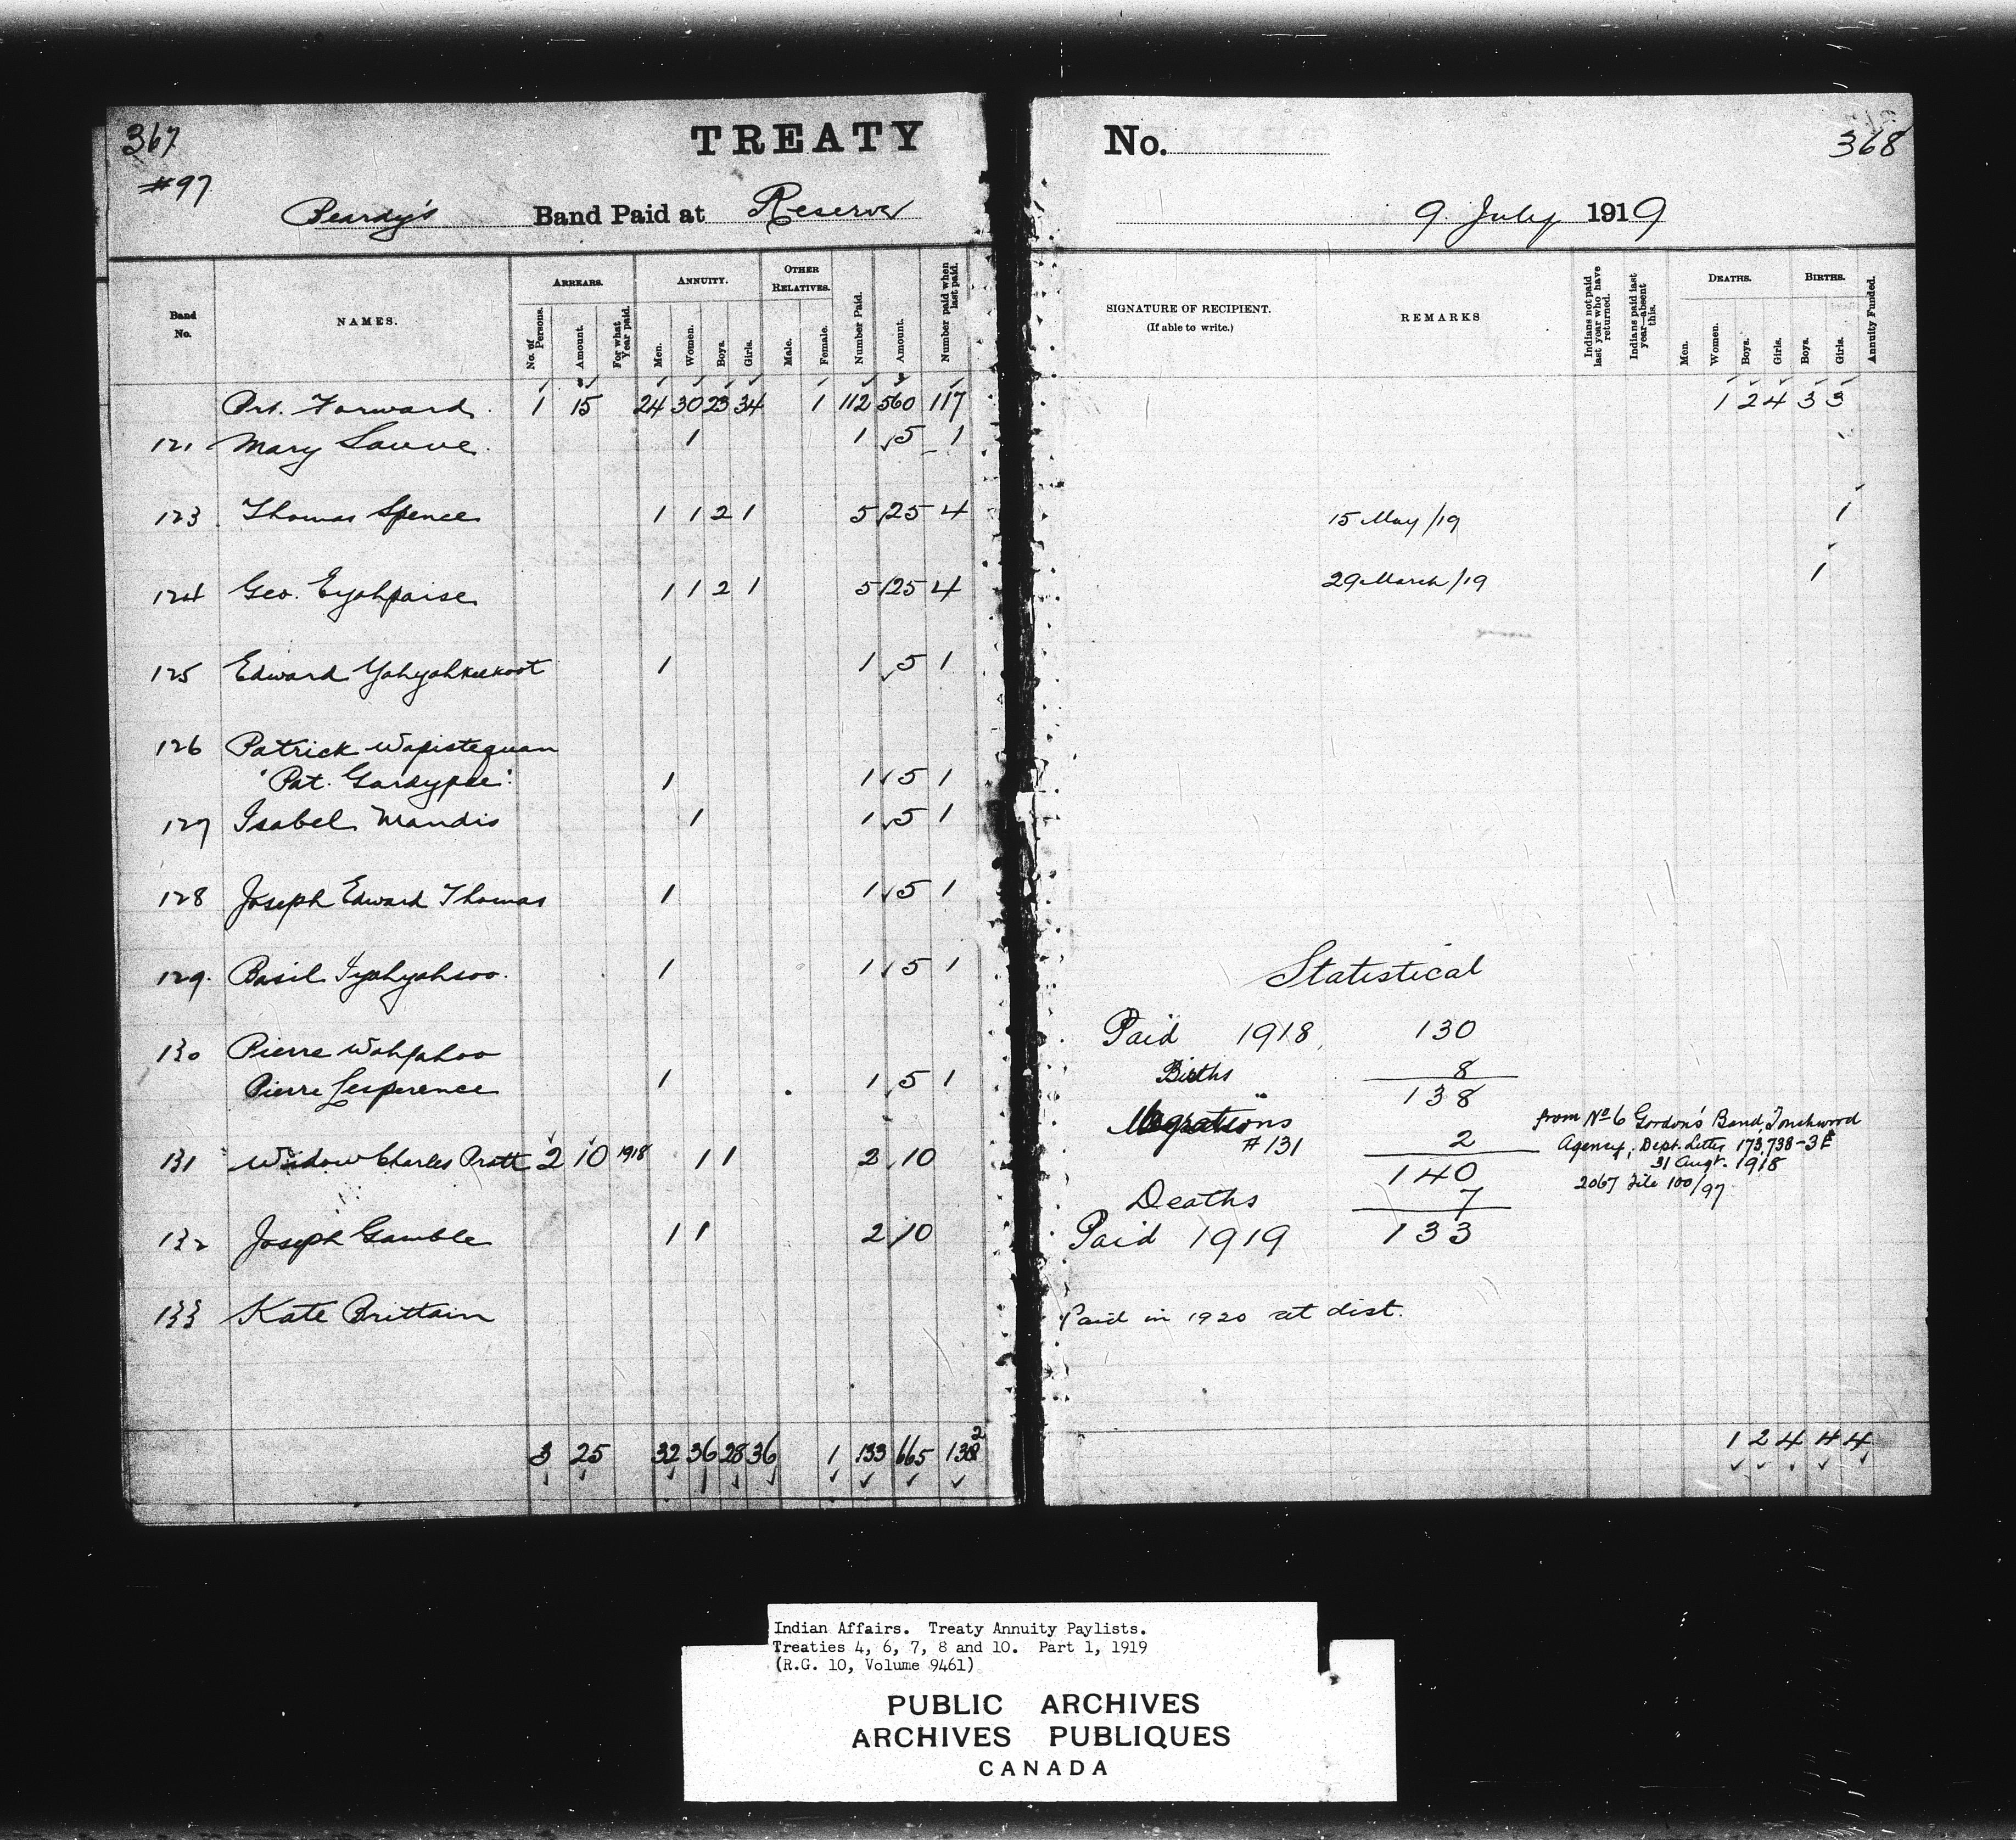 367
TREATY No. 368
#97
Beardy's Band Paid at Reserve 9 July 1919
Band No.
NAMES.
ARREARS.
No. of Persons.
Amount.
For what Year paid.
ANNUITY.
Men.
Women.
Boys.
Girls.
OTHER RELATIVES.
Male.
Female.
Number Paid.
Amount.
Number paid when last paid.
SIGNATURE OF RECIPIENT.
(If able to write.)
REMARKS
Indians not paid last year who have returned.
Indians paid last year—absent this.
DEATHS.
Men.
Women.
Boys.
Girls.
BIRTHS.
Boys.
Girls.
Annuity Funded.
Brt. Forward. 1 15 24 30 23 34 1 112 560 117 1 2 4 3 3
121 Mary 1 1 5 1
123 Thomas Spence 1 1 2 1 5 25 4 15 May/19 1
124 Geo. Eyahpaise 1 1 2 1 5 25 4 29 March/19 1
125 Edward Yahyahkeekoot 1 1 5 1
126 Patrick Wapistequan
"Pat. Gardypie" 1 1 5 1
127 Isabel Mandis 1 1 5 1
128 Joseph Edward Thomas 1 1 5 1
129. Basil Iyahyahsoo. 1 1 5 1
130 Pierre
Pierre Lesperence 1 1 5 1
131 Widow Charles Pratt 2 10 1918 1 1 2 10
132 Joseph Gamble 1 1 2 10
133 Kate Brittain Paid in 1920 at dist.
Statistical
Paid 1918 130
Births 8
138
Migrations
#131 2
from No 6 Gordon's Band, Touchwood
Agency, Dept. Letter 173,738-3E
31 Augt. 1918
2067 File 100/97
140
Deaths 7
Paid 1919 133
3 25 32 36 28 36 1 133 665 138 2 1 2 4 4 4
Indian Affairs. Treaty Annuity Paylists.
Treaties 4, 6, 7, 8 and 10. Part 1, 1919
(R.G. 10, Volume 9461)
PUBLIC ARCHIVES
ARCHIVES PUBLIQUES
CANADA